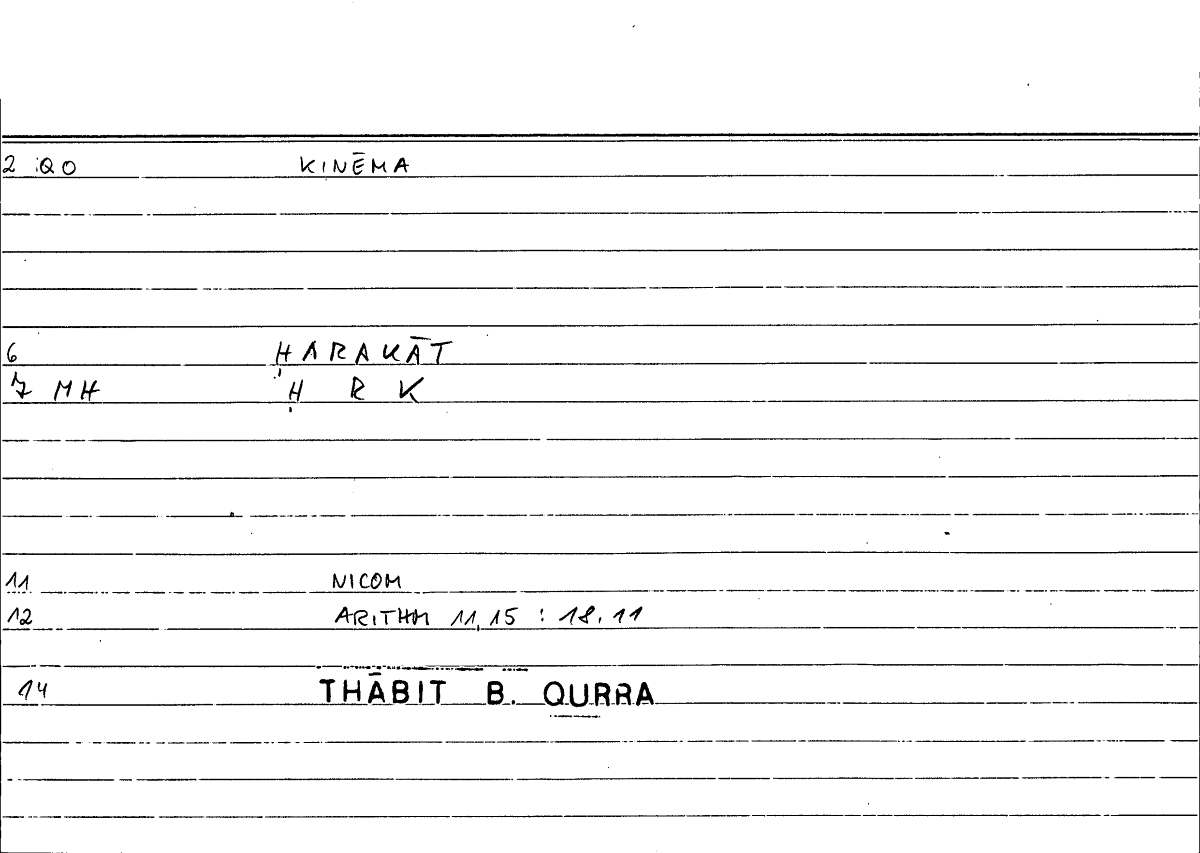 2 QO KINĒMA
6 ḤARAKĀT
7 MH Ḥ R K
11 NICOM
12 ARITHM 11,15 : 18.11
14 THĀBIT B. QURRA